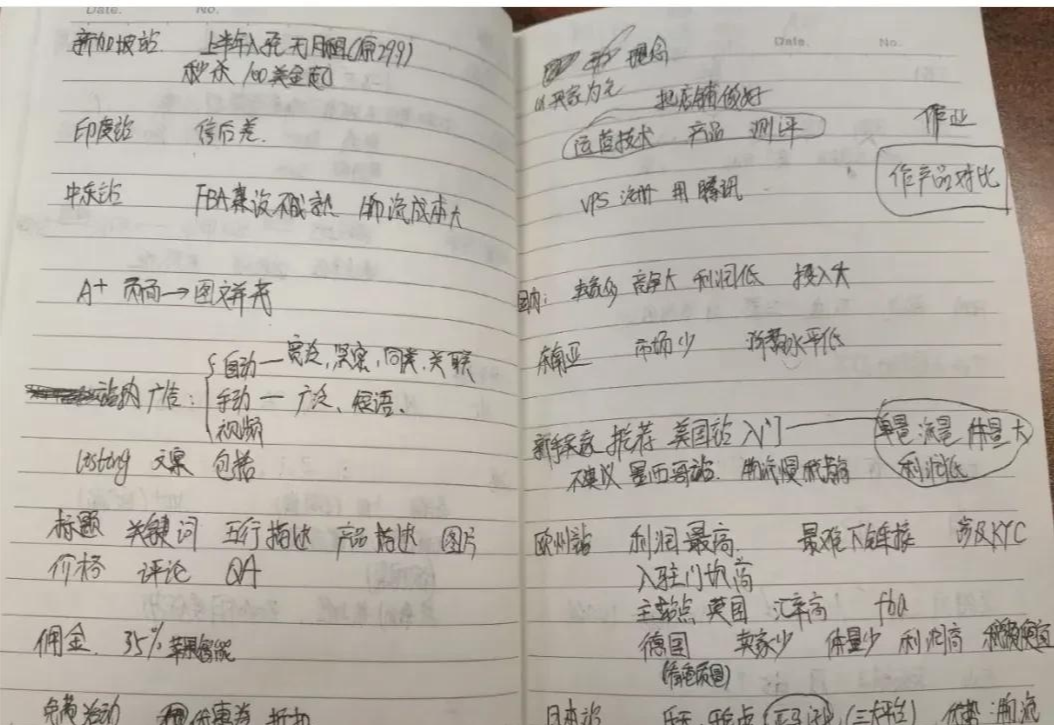 Date. No.
新加坡站 上半年入驻无月租(原299)
秒杀 100美金起
印度站 售后差.
中东站 FBA建设不成熟 物流成本大
A+ 页面→图文并茂
自动一宽泛,紧密,同类,关联
站内广告: 手动一广泛、短语、
视频
Listing 文案 包括
标题 关键词 五行描述 产品描述 图片
价格 评论 QA
佣金. 35%
免费活动 优惠券 折扣
Date. No.
理念
以买家为先 把店铺做好
运营技术 产品 测评
作业
作产品对比
VPS 注册 用腾讯
国内: 卖家多 竞争大 利润低 投入大
东南亚 市场少 消费水平低
新手卖家 推荐 美国站入门 单量 流量 体量大
利润低
不建议 墨西哥站. 物流慢
欧州站 利润最高. 最难下链接 涉及KYC
入驻门坎高
主站点 英国 汇率高 fba
德国 卖家少 体量少 利润高
日本站 乐天 亚马逊 (三大平台) 优势:物流